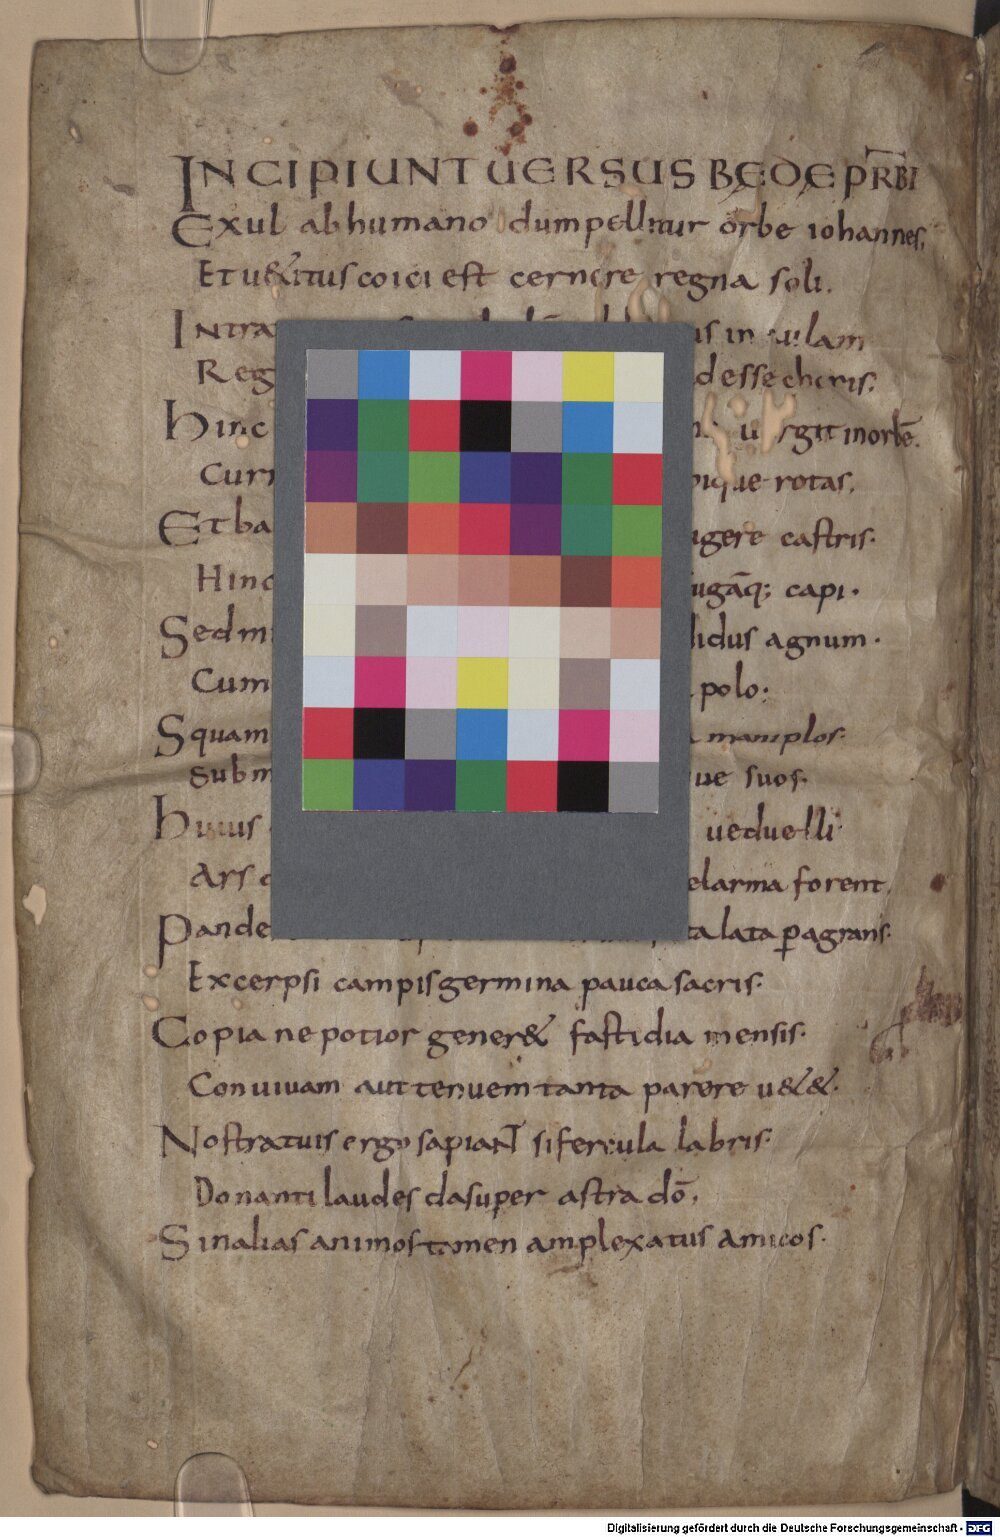 INCIPIUNT UERSUS BEDE PRBI
Exul ab humano dum pellitur orbe iohannes,
Et uetitus coici est cernere regna soli.
Intra us in aulam
Reg desse choris;
hinc orbe.
Curr que rotas,
Et ba gere castris.
Hinc ugāq; capi.
Sed mi lidus agnum.
Cum polo;
Squam maniplos.
Subm ue suos.
huius ue duelli
Ars el arma forent.
Pande ta lata ꝑagrans.
Excerpsi campis germina pauca sacris.
Copia ne potior gener& fastidia mensis.
Conuiuam aut tenuem tanta parere u&&.
Nostratuis ergo sapiant si fercula labris.
Donanti laudes da super astra dō,
Sin alias animos tamen amplexatus amicos.
Digitalisierung gefördert durch die Deutsche Forschungsgemeinschaft - DFG